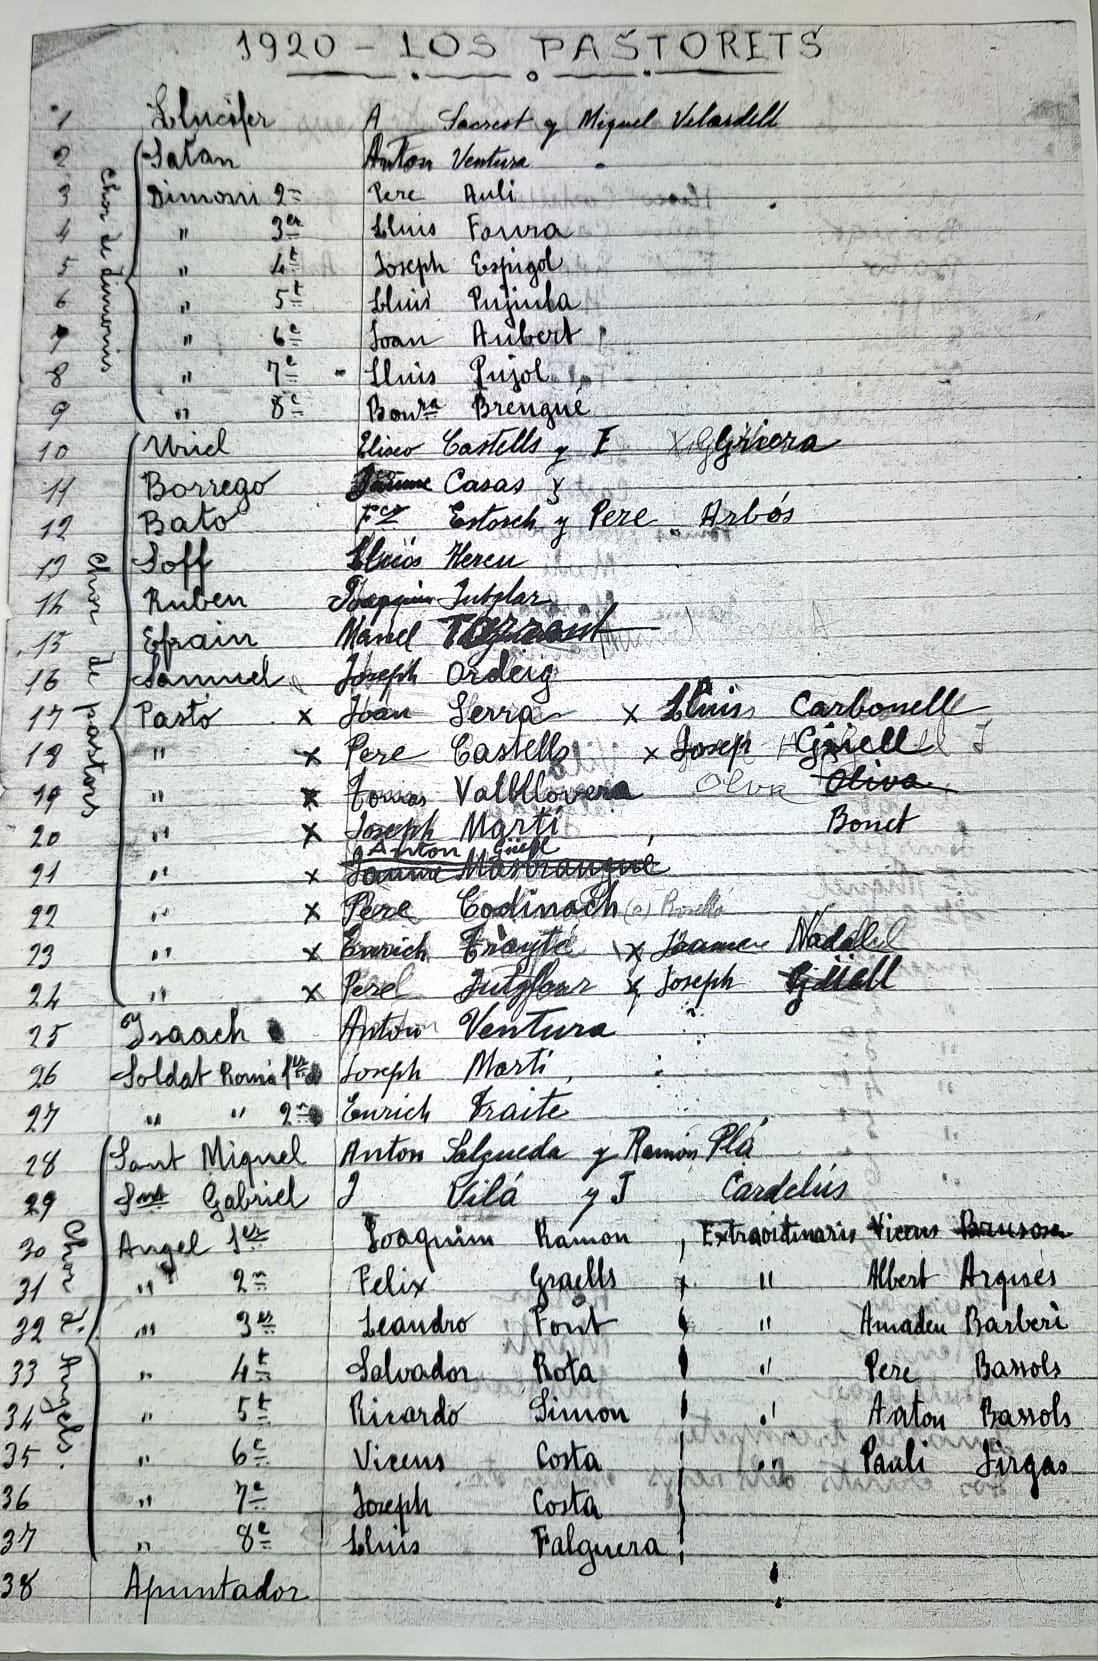 1920 - LOS PASTORETS
1 Llucifer A Sacrest y Miquel Vilardell
2 Satan Anton Ventura
3 Dimoni 2n Pere Auli
4 " 3er Lluis Foura
5 " 4t Joseph Espigol
6 " 5t Lluis Pujiula
7 " 6e Joan Aubert
8 " 7e Lluis Pujol
9 " 8e Bonra Brengué
Chor de dimonis
10 Uriel Eliseo Castells y F Griera
11 Borrego Jaume Casas y
12 Bato Fco Estosch y Pere Arbós
13 Soff Lluis Hereu
14 Ruben Joaquim Jutglar
15 Efrain Manel
16 Samuel Joseph Ordeig
17 Pastó x Joan Serra x Lluis Carbonell
18 " x Pere Castells x Joseph Güell
19 " x Tomas Vallllovera Oliva Oliva
20 " x Joseph Martí Bonet
Anton Güell
21 " x Jaume Masbrangué
22 " x Pere Codinach (a) Rosello
23 " x Enrich Trayté x Jaume Nadal
24 " x Pere Jutglar x Joseph Güell
Chor de pastors
25 Isaach Anton Ventura
26 Soldat Romá 1er Joseph Marti
27 " " 2n Enrich Traite
28 Sant Miquel Anton Salgueda y Ramón Plá
29 Sant Gabriel J Vilá y J Cardelús
30 Angel 1er Joaquim Ramon, Extraoidinaris Vicens Brusosa
31 " 2n Felix Graells " Albert Arqués
32 " 3er Leandro Font " Amadeu Barberi
33 " 4t Salvador Rota " Pere Bassols
34 " 5t Ricardo Simon " Anton Bassols
35 " 6e Vicens Costa " Pauli Sirgas
36 " 7e Joseph Costa
37 " 8e Lluis Falguera
Chor d' Angels.
38 Apuntador